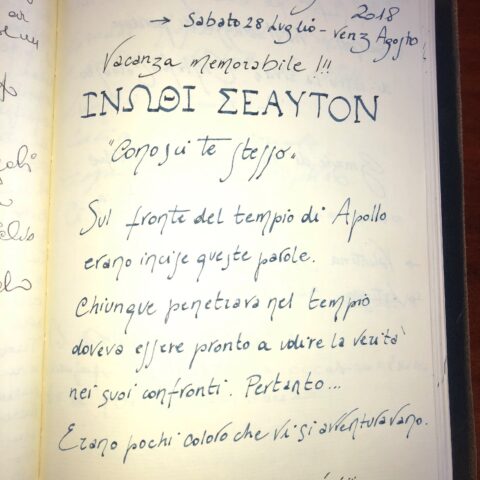 2018
→ Sabato 28 Luglio - Ven 3 Agosto
Vacanza memorabile !!!
ΓΝΩΘΙ ΣΕΑΥΤΟΝ
"Conosci te stesso"
Sul fronte del tempio di Apollo
erano incise queste parole.
Chiunque penetrava nel tempio
doveva essere pronto a udire la verità
nei suoi confronti. Pertanto...
Erano pochi coloro che vi si avventuravano.